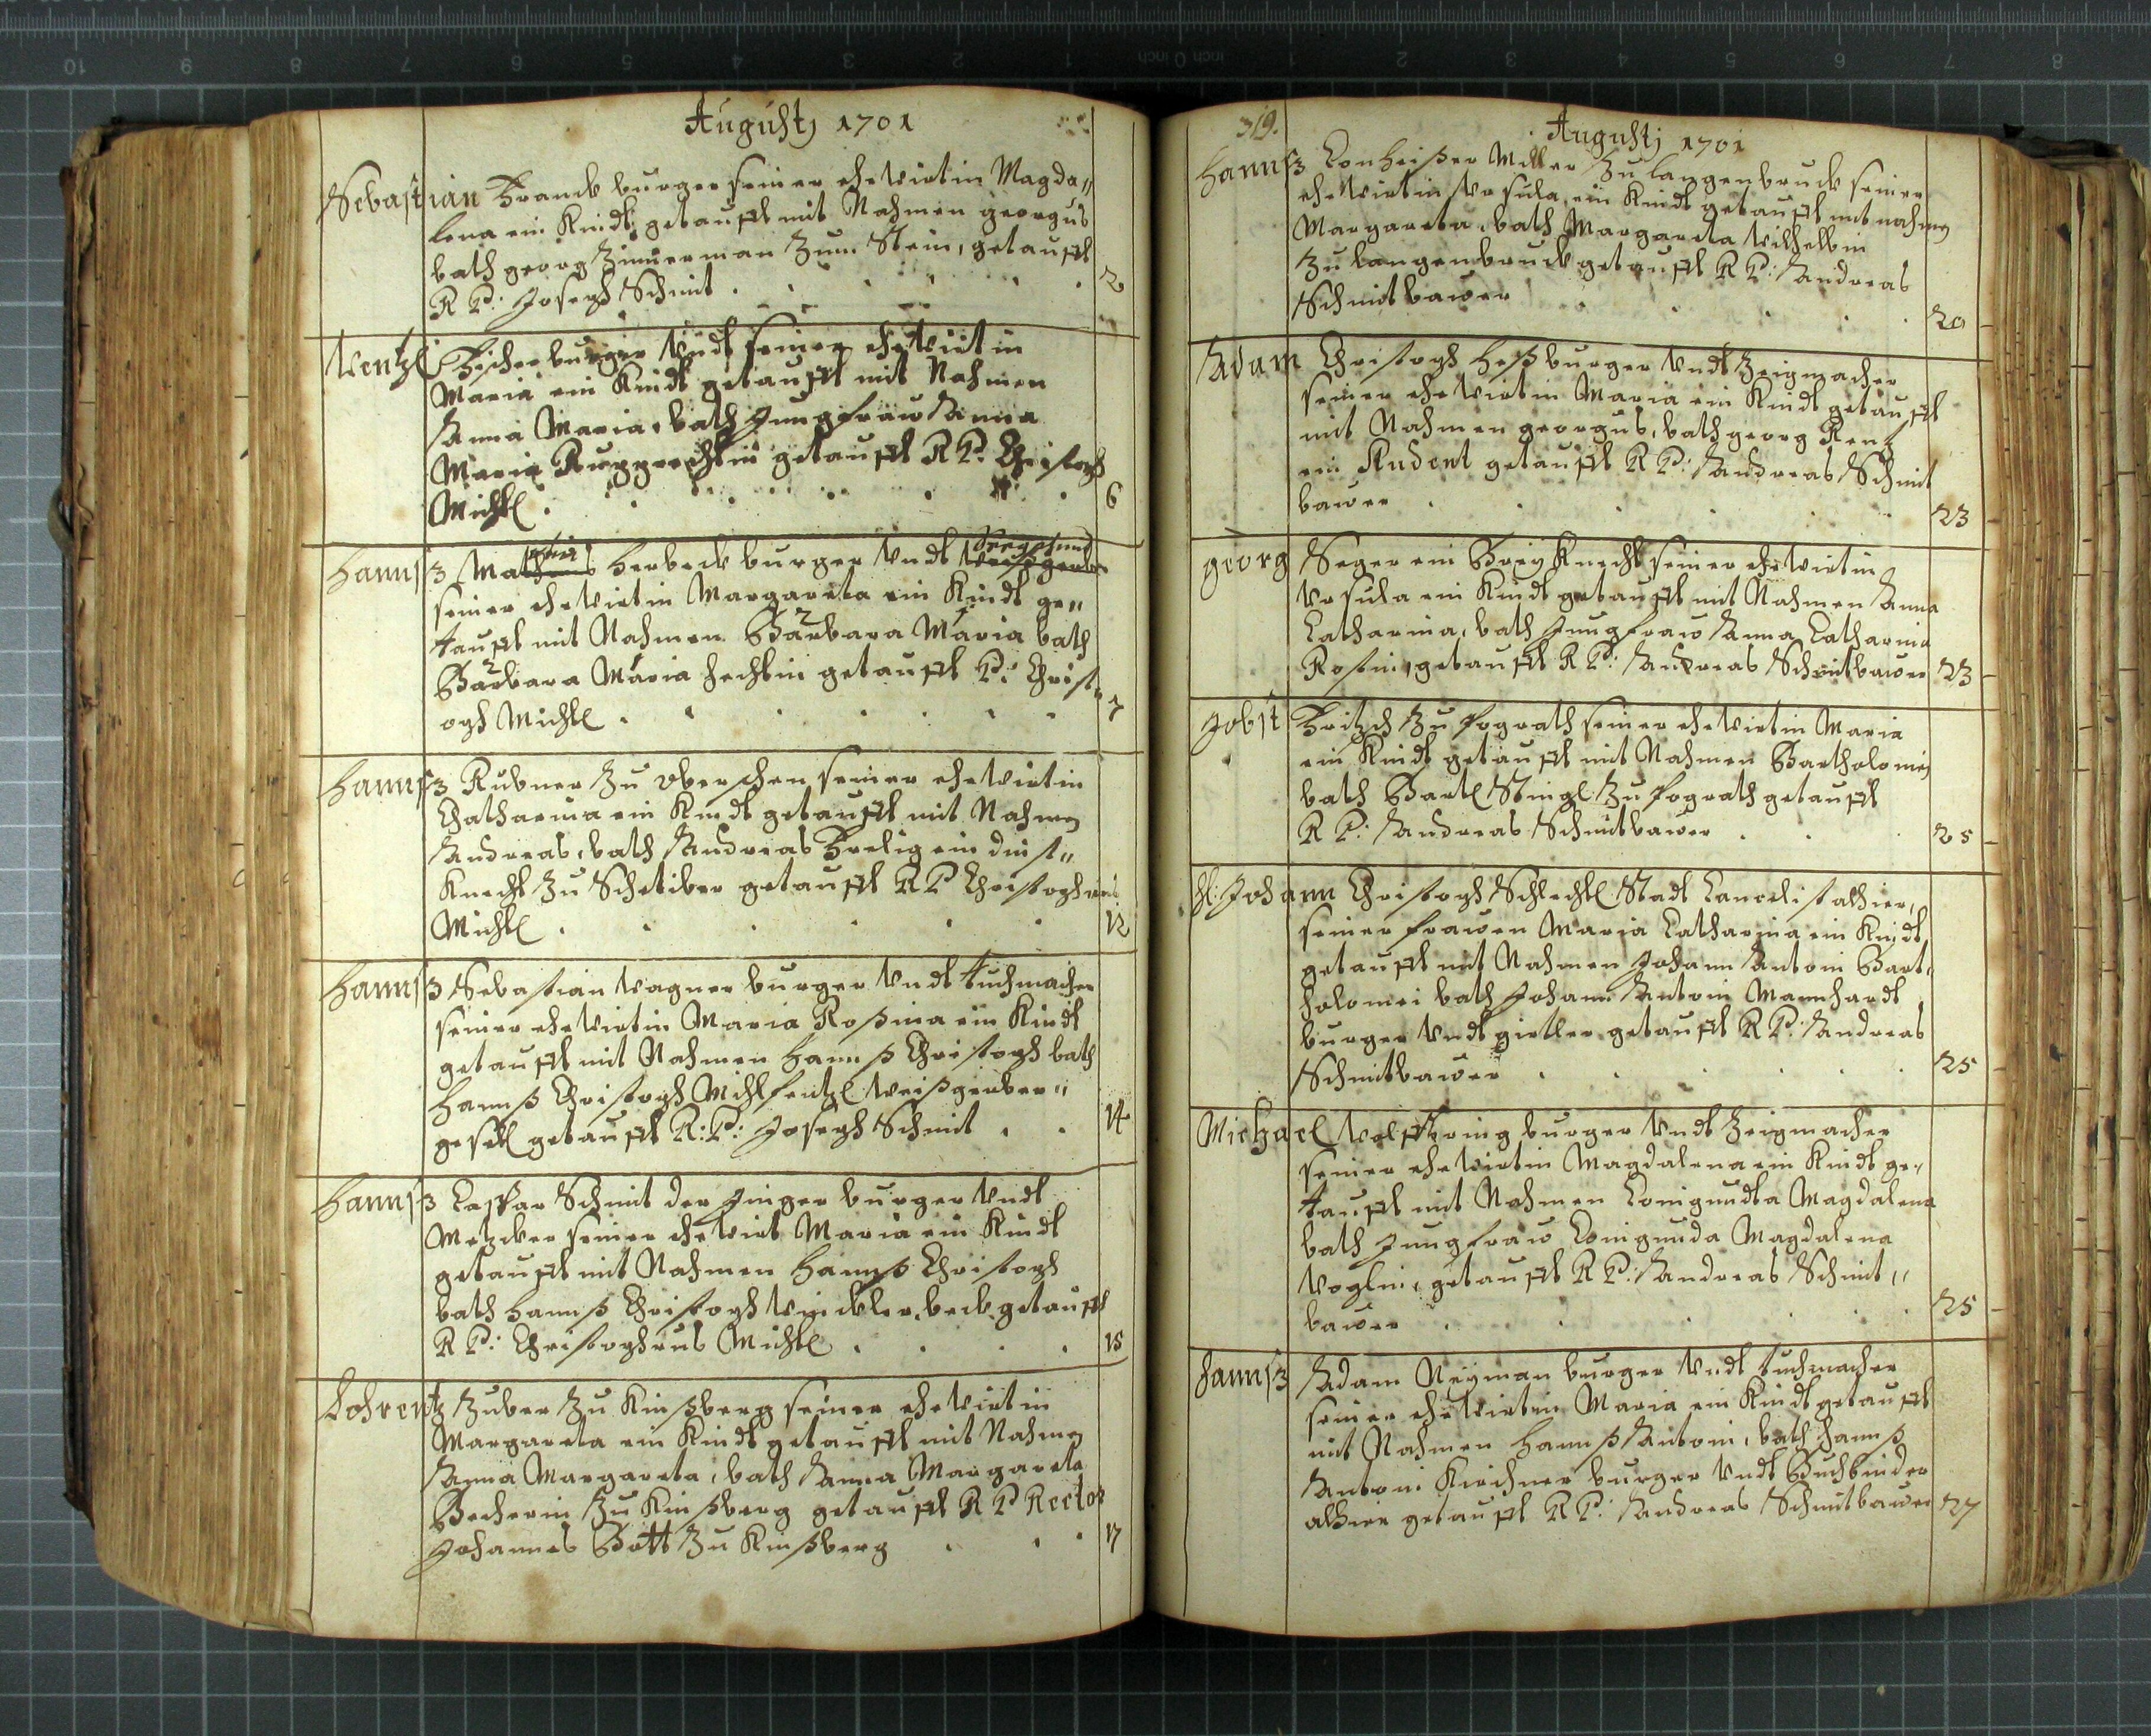 Augustj 1701
Sebastian Franck burger seiner ehewirtin Magda„
lena ein Kindt getaufft mit Nahmen georgus
bath georg Zimmerman Zum Stein, getaufft
R P: Joseph Schmit . 2
Wentzl Fischer burger Vndt seiner ehewirtin
Maria ein Kindt getaufft mit Nahmen
Anna Maria, bath Jungfraw Anna
Maria Rupprechtin getaufft R P. Christoph
Michl . 6
Hannß Herbeck burger Vndt
seiner ehewirtin Margareta ein Kindt ge„
taufft mit Nahmen Barbara Maria bath
Barbara Maria Hechtin getaufft P: Christ„
oph Michl . 7
Hannß Rubner Zu seiner ehewirtin
Chatharina ein Kindt getaufft mit Nahmen
Andreas, bath Andreas ein dinst„
Knecht Zu Schetiber getaufft R P Christophrus
Michl . 12
Hannß Sebastian Wagner burger Vndt tuchmacher
seiner ehewirtin Maria Roßina ein Kindt
getaufft mit Nahmen Hannß Christoph bath
Hannß Christoph weißgerber„
gesell getaufft R: P: Joseph Schmit . . 14
Hannß Caspar Schmit der Jinger burger Vndt
Metzcker seiner ehewirt Maria ein Kindt
getaufft mit Nahmen Hannß Christoph
bath Hannß Christoph Winckler, beck getaufft
R P: Christophrus Michl . 15
Lohrentz Zuber Zu Kinßberg seiner ehewirtin
Margareta ein Kindt getaufft mit Nahmen
Anna Margareta, bath Anna Margareta
Becherin Zu Kinßberg getaufft R P Rector
Johannes Bott Zu Kinßberg 17
319.
Augustj 1701
Hannß Miller Zu langenbruck seiner
ehewirtin Vrsula, ein Kindt getaufft mit nahmen
Margareta, bath Margareta
Zu langenbruck getaufft R P: Andreas
Schmitbawer 20
Adam Christoph Heß burger Vndt Zeigmacher
seiner ehewirtin Maria ein Kindt getaufft
mit Nahmen georgus, bath georg Rentz
ein Student getaufft R P: Andreas Schmit
bawer . 23
georg Seger ein Breyknecht seiner ehewirtin
Vrsula ein Kindt getaufft mit Nahmen Anna
Catharina, bath Jungfraw Anna Catharina
Rostin, getaufft R P: Andreas Schmitbawer 23
Jobst Fritsch Zu fograth seiner ehewirtin Maria
ein Kindt getaufft mit Nahmen Bartholomej
bath Bartl Stingl Zu fograth getaufft
R P: Andreas Schmitbawer . 25
H: Johann Christoph Schlechtl Stadt Cancelist alhier,
seiner frawen Maria Catharina ein Kindt
getaufft mit Nahmen Johann Antoni Bart„
holomei bath Johann Antoni Mannhardt
burger Vndt girtler getaufft R P: Andreas
Schmitbawer . 25
Michael burger Vndt Zeigmacher
seiner ehewirtin Magdalena ein Kindt ge„
taufft mit Nahmen Conigundta Magdalena
bath Jungfraw Conigunda Magdalena
Voglin, getaufft R P: Andreas Schmit„
bawer . 25
Hannß Adam Neyman burger Vndt tuchmacher
seiner ehewirtin Maria ein Kindt getaufft
mit Nahmen Hannß Antoni, bath Hannß
Antoni Kirchner burger Vndt Buchbinder
alhier getaufft R P: Andreas Schmitbawer 27